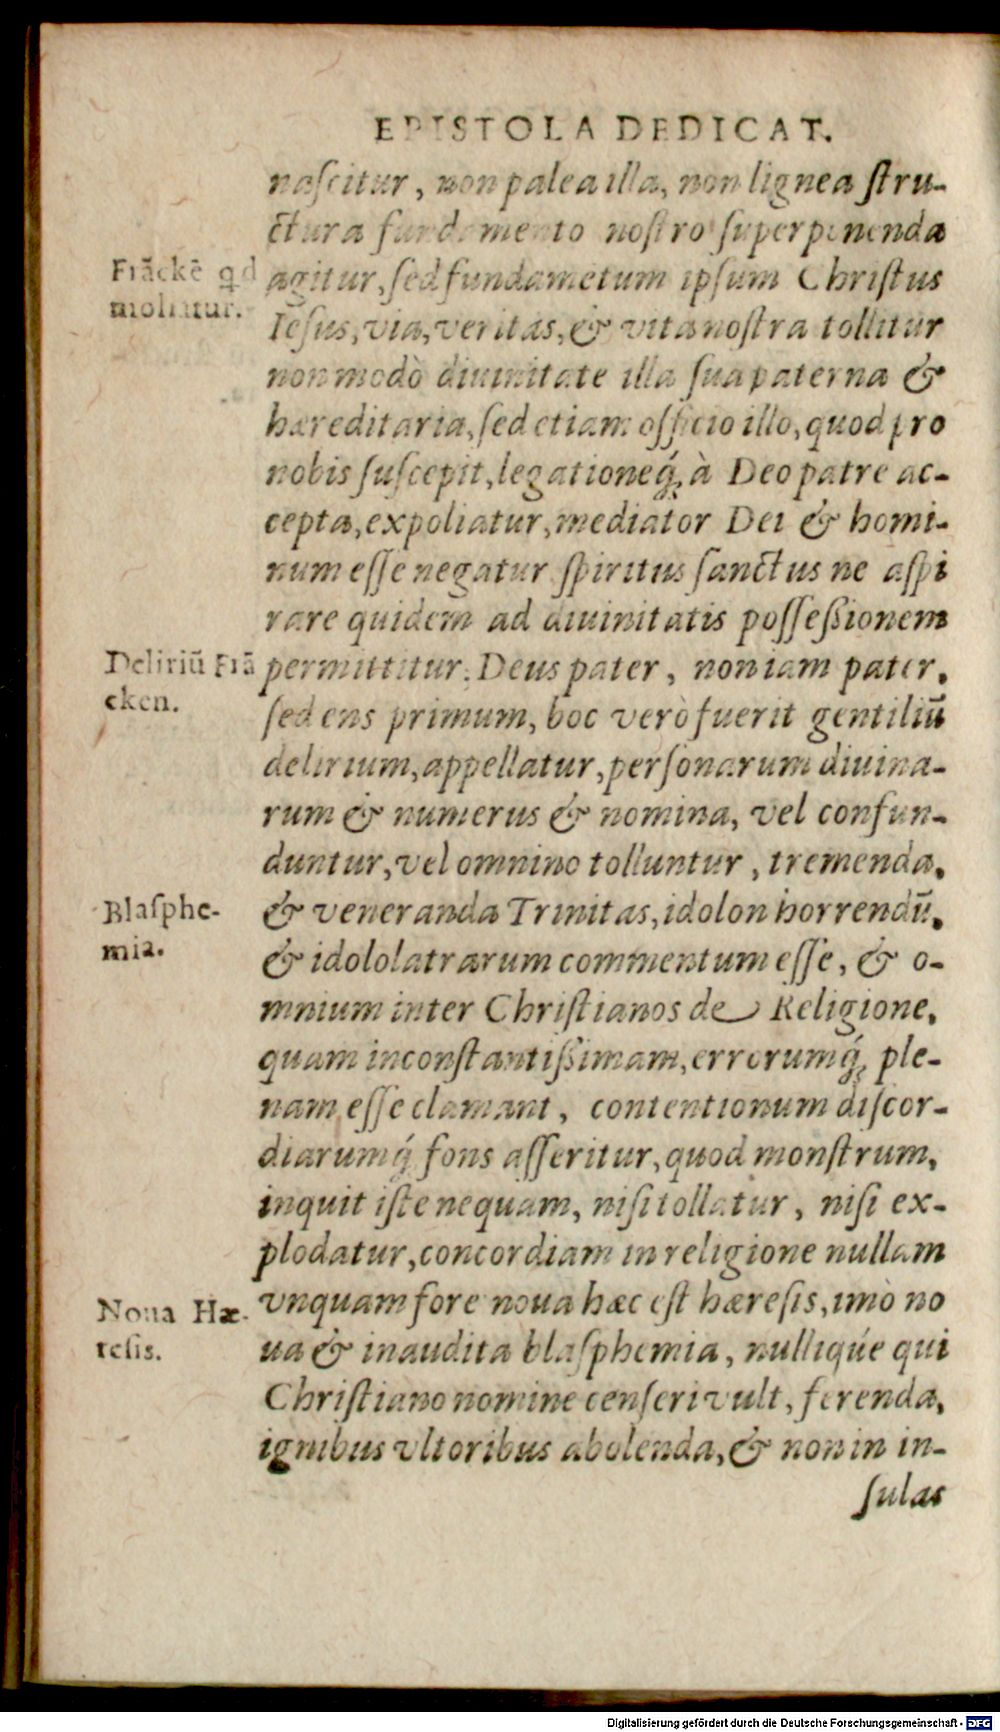 EPISTOLA DEDICAT.
naſcitur, non palea illa, non lignea ſtru-
ctura fundamento noſtro ſuperponenda
Frãckẽ qd
agitur, ſed fundamẽtum ipſum Chriſtus
molitur.
Ieſus, via, veritas, & vita noſtra tollitur
non modò diuinitate illa ſua paterna &
hæreditaria, ſed etiam officio illo, quod pro
nobis ſuſcepit, legationeq́; à Deo patre ac-
cepta, expoliatur, mediator Dei & homi-
num eſſe negatur ſpiritus ſanctus ne aſpi
rare quidem ad diuinitatis poſſeßionem
Deliriũ Frã
permittitur: Deus pater, non iam pater,
cken.
ſed ens primum, hoc verò fuerit gentiliũ
delirium, appellatur, perſonarum diuina-
rum & numerus & nomina, vel confun-
duntur, vel omnino tolluntur, tremenda,
Blaſphe-
& veneranda Trinitas, idolon horrendũ,
mia.
& idololatrarum commentum eſſe, & o-
mnium inter Chriſtianos de Religione,
quam inconſtantißimam, errorumq́; ple-
nam eſſe clamant, contentionum diſcor-
diarumq́; fons aſſeritur, quod monſtrum,
inquit iſte nequam, niſi tollatur, niſi ex-
plodatur, concordiam in religione nullam
Noua Hæ-
vnquam fore noua hæc eſt hæreſis, imò no
reſis.
ua & inaudita blaſphemia, nulliqúe qui
Chriſtiano nomine cenſeri vult, ferenda,
ignibus vltoribus abolenda, & non in in-
ſulas
Digitalisierung gefördert durch die Deutsche Forschungsgemeinschaft - DFG